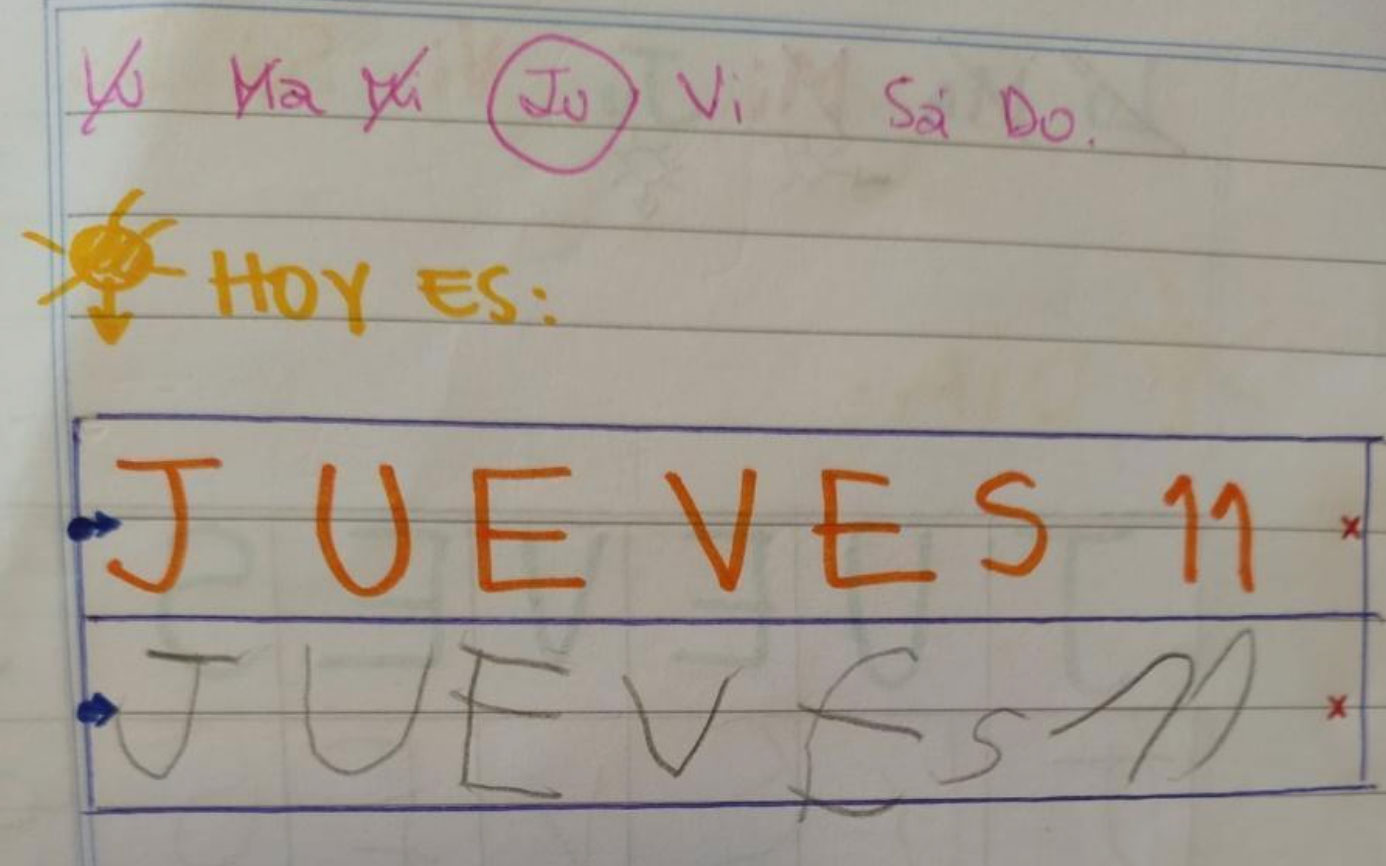 Lu Ma Mi Ju Vi Sá Do.
HOY ES:
JUEVES 11
JUEVES 11